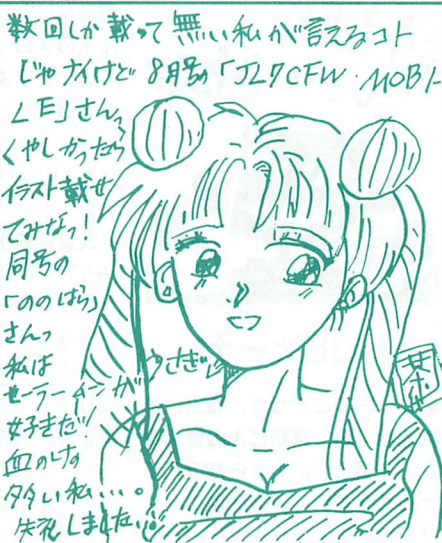 数回しか載って無い私が言えるコト
じゃナイけど 8月号の「JL7CFW・MOBI
LE」さんっ
くやしかったら
イラスト載せ
てみなっ!
同号の
「ののはら」
さんっ
私は
セーラームーンが
好きだッ!
血のけの
多い私...。
失礼しましたぃ。
うさぎ